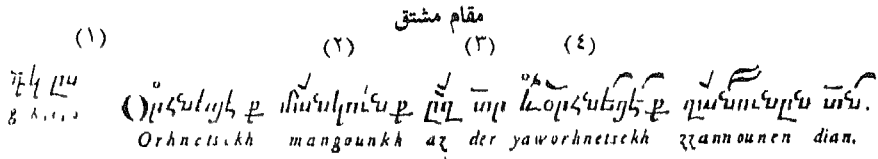 مقام مشتق
(١) (٢) (٣) (٤)
Օրհնեցէք մանկունք ըզ տր եւօրհնեցէք զանունըն տն.
Orhnetsekh mangounkh az der yaworhnetsekh zzannounen dian.